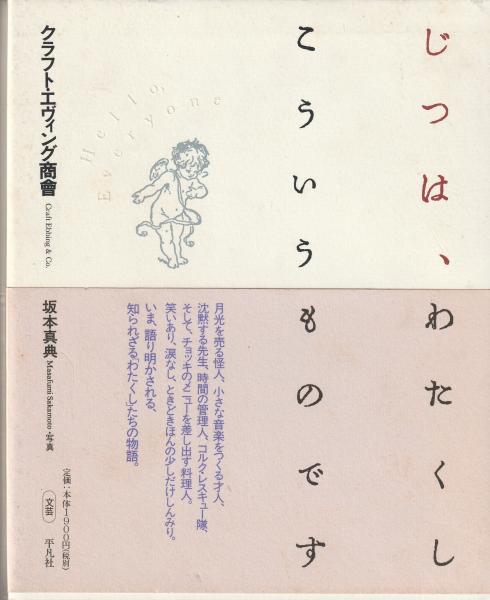 じつは、わたくし
こういうものです
Hello,
Everyone
クラフト・エヴィング商會
Craft Ebbing & Co.
月光を売る怪人、小さな音楽をつくる才人、
沈黙する先生、時間の管理人、コルク・レスキュー隊、
そして、チョッキのメニューを差し出す料理人。
笑いあり、涙なし、ときどきほんの少しだけしんみり。
いま、語り明かされる、
知られざる「わたくし」たちの物語。
坂本真典
Masafumi Sakamoto・写真
定価:本体1900円(税別)
文芸
平凡社